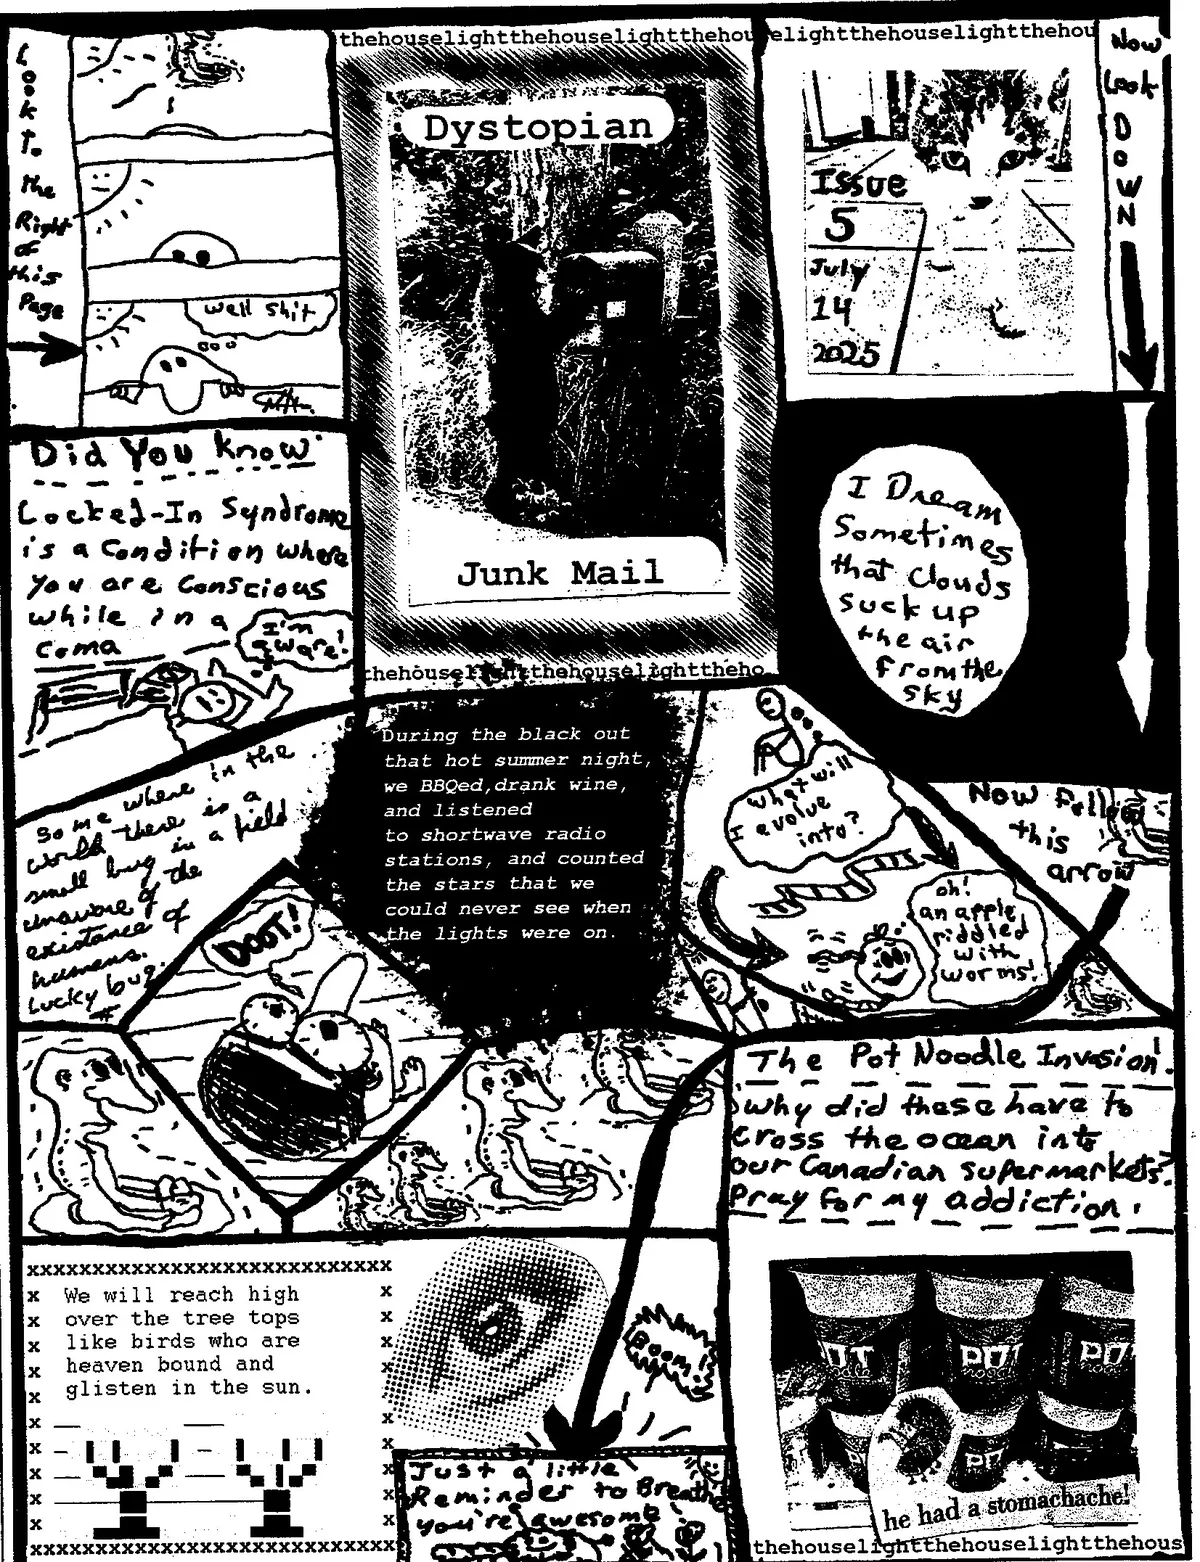 Look To
the
Right
of
this
Page
well shit
thehouselightthehouselightthehou
Dystopian
Junk Mail
thehouselightthehouselighttheho
elightthehouselightthehou
Issue
5
July
14
2025
Now
Look
DOWN
Did You Know
Locked-In Syndrome
is a Condition where
you are Conscious
while in a
Coma
I'm
aware!
I Dream
Sometimes
that Clouds
suck up
the air
from the
sky
During the black out
that hot summer night,
we BBQed,drank wine,
and listened
to shortwave radio
stations, and counted
the stars that we
could never see when
the lights were on.
Some where in the
world there is a
small bug in a field
unaware of the
existance of
humans.
Lucky bug.
DOOT!
what will
I evolve
into?
oh!
an apple
riddled
with
worms!
Now Follow
this
arrow
The Pot Noodle Invasion!
why did these have to
cross the ocean into
our Canadian supermarkets?
Pray for my addiction!
xxxxxxxxxxxxxxxxxxxxxxxxxxxxx
x We will reach high x
x over the tree tops x
x like birds who are x
x heaven bound and x
x glisten in the sun. x
xxxxxxxxxxxxxxxxxxxxxxxxxxxxx
Boom!
Just a little
Reminder to Breathe
you're awesome
POT
POT
POT
he had a stomachache!
thehouselightthehouselightthehous